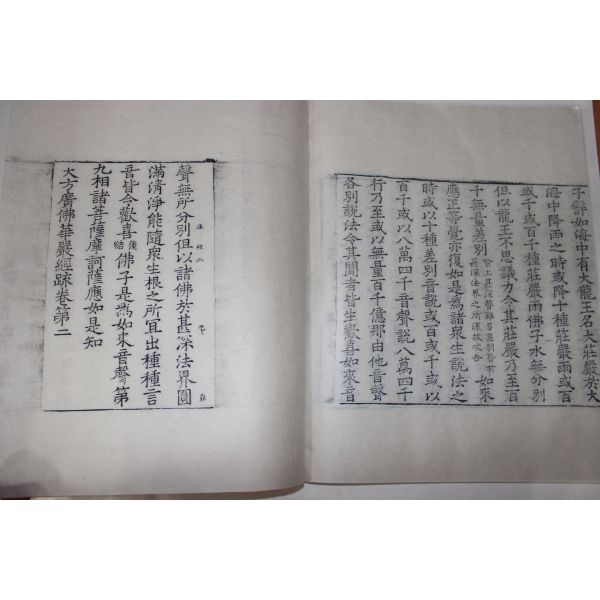 子譬如海中有大龍王名大莊嚴於大
海中降雨之時或降十種莊嚴雨或百
或千或百千種莊嚴雨佛子水無分別
但以龍王不思議力令其莊嚴乃至百
千無量差別如來
應正等覺亦復如是為諸眾生說法之
時或以十種差別音說或百或千或以
百千或以八萬四千音聲說八萬四千
行乃至或以無量百千億那由他音聲
各別說法令其聞者皆生歡喜如來音
聲無所分別但以諸佛於甚深法界圓
滿清淨能隨眾生根之所宜出種種言
音皆令歡喜後結佛子是為如來音聲第
九相諸菩薩摩訶薩應如是知
大方廣佛華嚴經疏卷第二